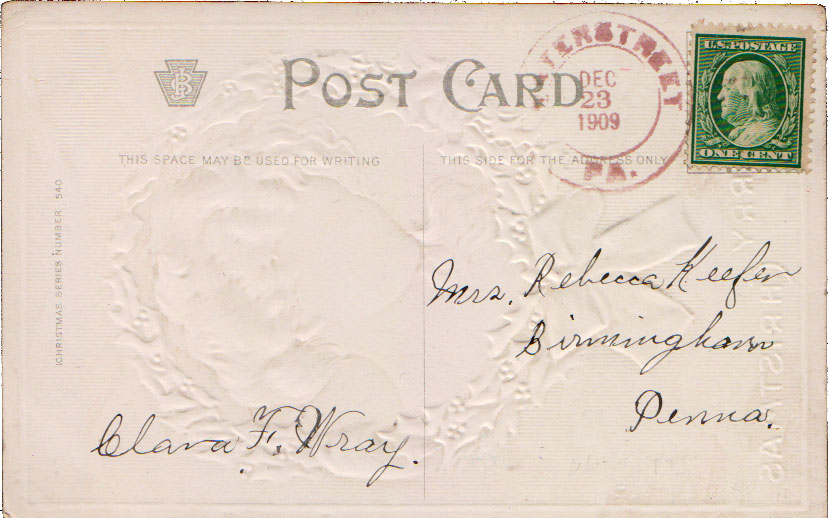 POST CARD
THIS SPACE MAY BE USED FOR WRITING
THIS SIDE FOR THE ADDRESS ONLY
DEC
23
1909
PA.
U.S. POSTAGE
ONE CENT
CHRISTMAS SERIES NUMBER 540
Mrs. Rebecca Keefer
Birmingham
Penna.
Clara F. Wray.